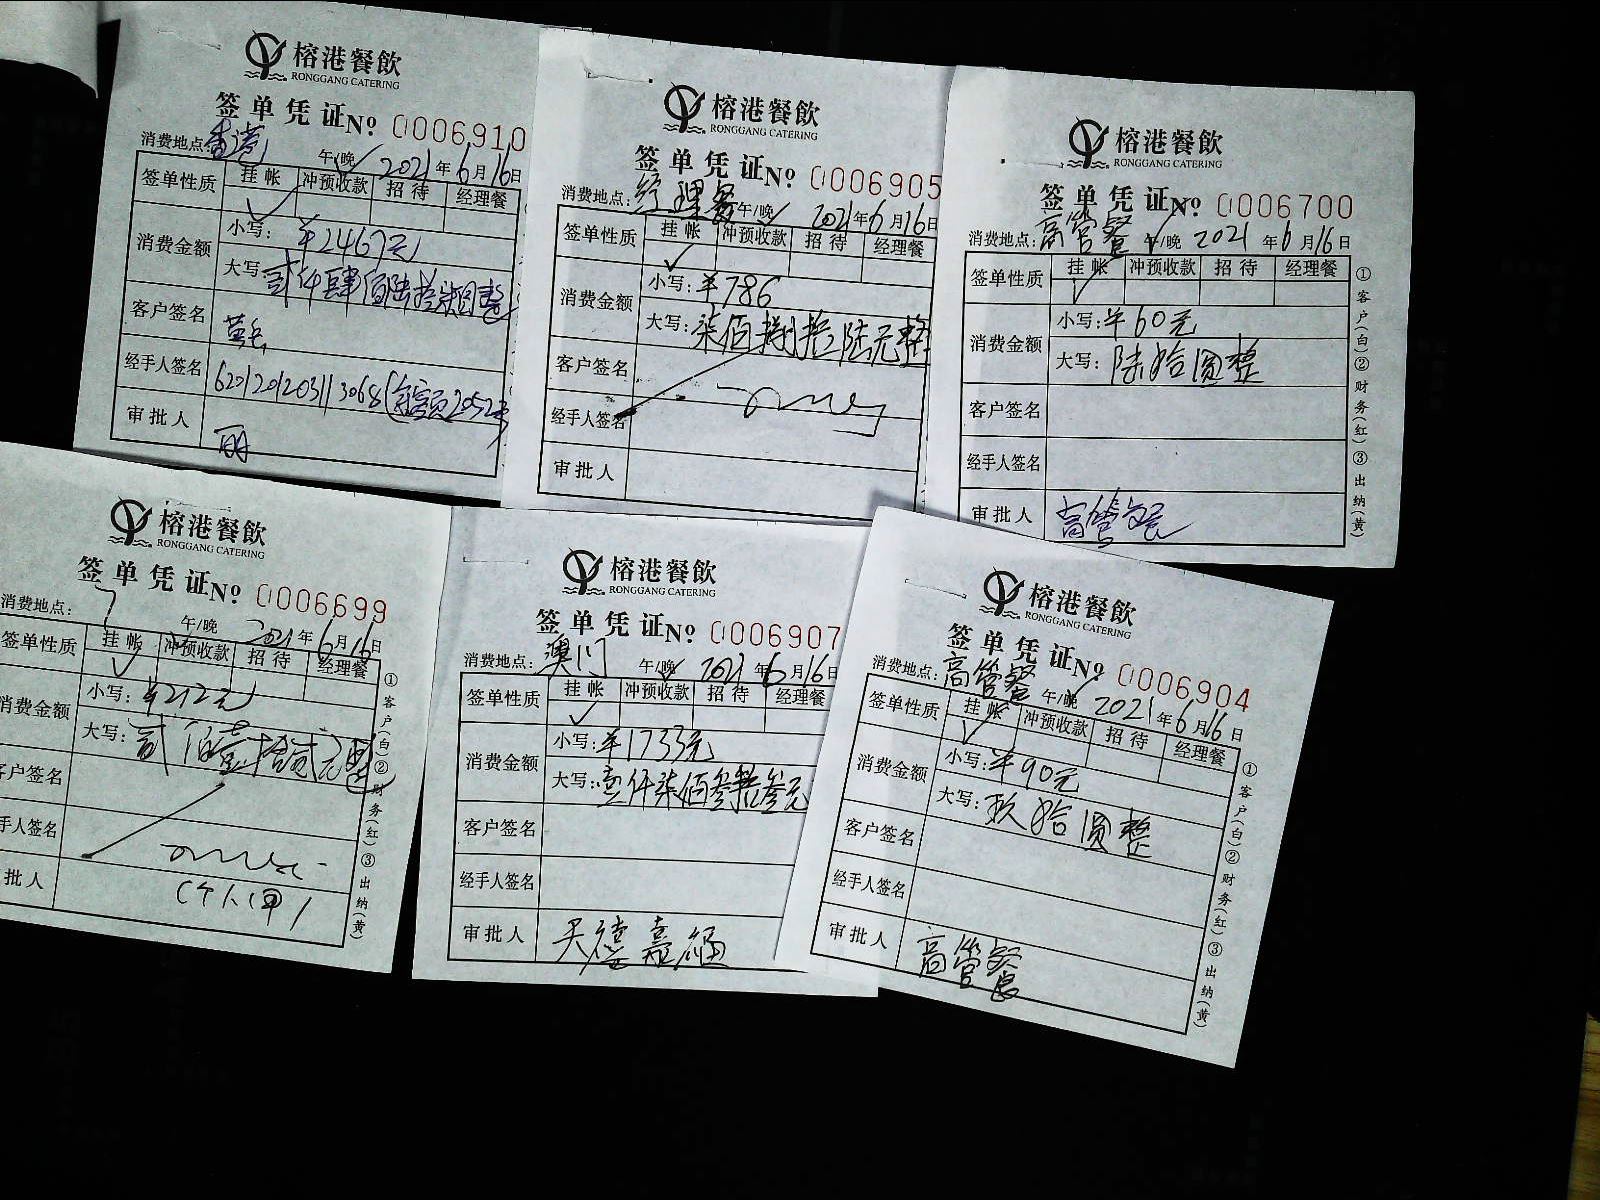 榕港餐飲
RONGGANG CATERING
签单凭证№ 0006910
消费地点: 香港 午/晚 2021年6月16日
签单性质 挂帐 冲预收款 招待 经理餐
消费金额 小写: ¥2467元
大写: 贰仟肆佰陆拾柒圆整
客户签名
经手人签名 6201201203113068(余额2052
审批人
榕港餐飲
RONGGANG CATERING
签单凭证№ 0006905
消费地点: 经理餐 午/晚 2021年6月16日
签单性质 挂帐 冲预收款 招待 经理餐
消费金额 小写: ¥786
大写: 柒佰捌拾陆元整
客户签名
经手人签名
审批人
榕港餐飲
RONGGANG CATERING
签单凭证№ 0006700
消费地点: 高管餐 午/晚 2021年6月16日
签单性质 挂帐 冲预收款 招待 经理餐
消费金额 小写: ¥60元
大写: 陆拾圆整
客户签名
经手人签名
审批人 高管餐
①客户(白)②财务(红)③出纳(黄)
榕港餐飲
RONGGANG CATERING
签单凭证№ 0006699
消费地点: 7 午/晚 2021年6月16日
签单性质 挂帐 冲预收款 招待 经理餐
消费金额 小写: ¥212元
大写: 贰佰壹拾贰元整
客户签名
手人签名
批人
①客户(白)②财务(红)③出纳(黄)
榕港餐飲
RONGGANG CATERING
签单凭证№ 0006907
消费地点: 澳门 午/晚 2021年6月16日
签单性质 挂帐 冲预收款 招待 经理餐
消费金额 小写: ¥1733元
大写: 壹仟柒佰叁拾叁元
客户签名
经手人签名
审批人
榕港餐飲
RONGGANG CATERING
签单凭证№ 0006904
消费地点: 高管餐 午/晚 2021年6月16日
签单性质 挂帐 冲预收款 招待 经理餐
消费金额 小写: ¥90元
大写: 玖拾圆整
客户签名
经手人签名
审批人 高管餐
①客户(白)②财务(红)③出纳(黄)